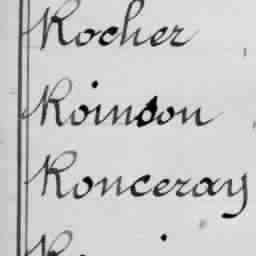 Rocher
Roinson
Ronceray